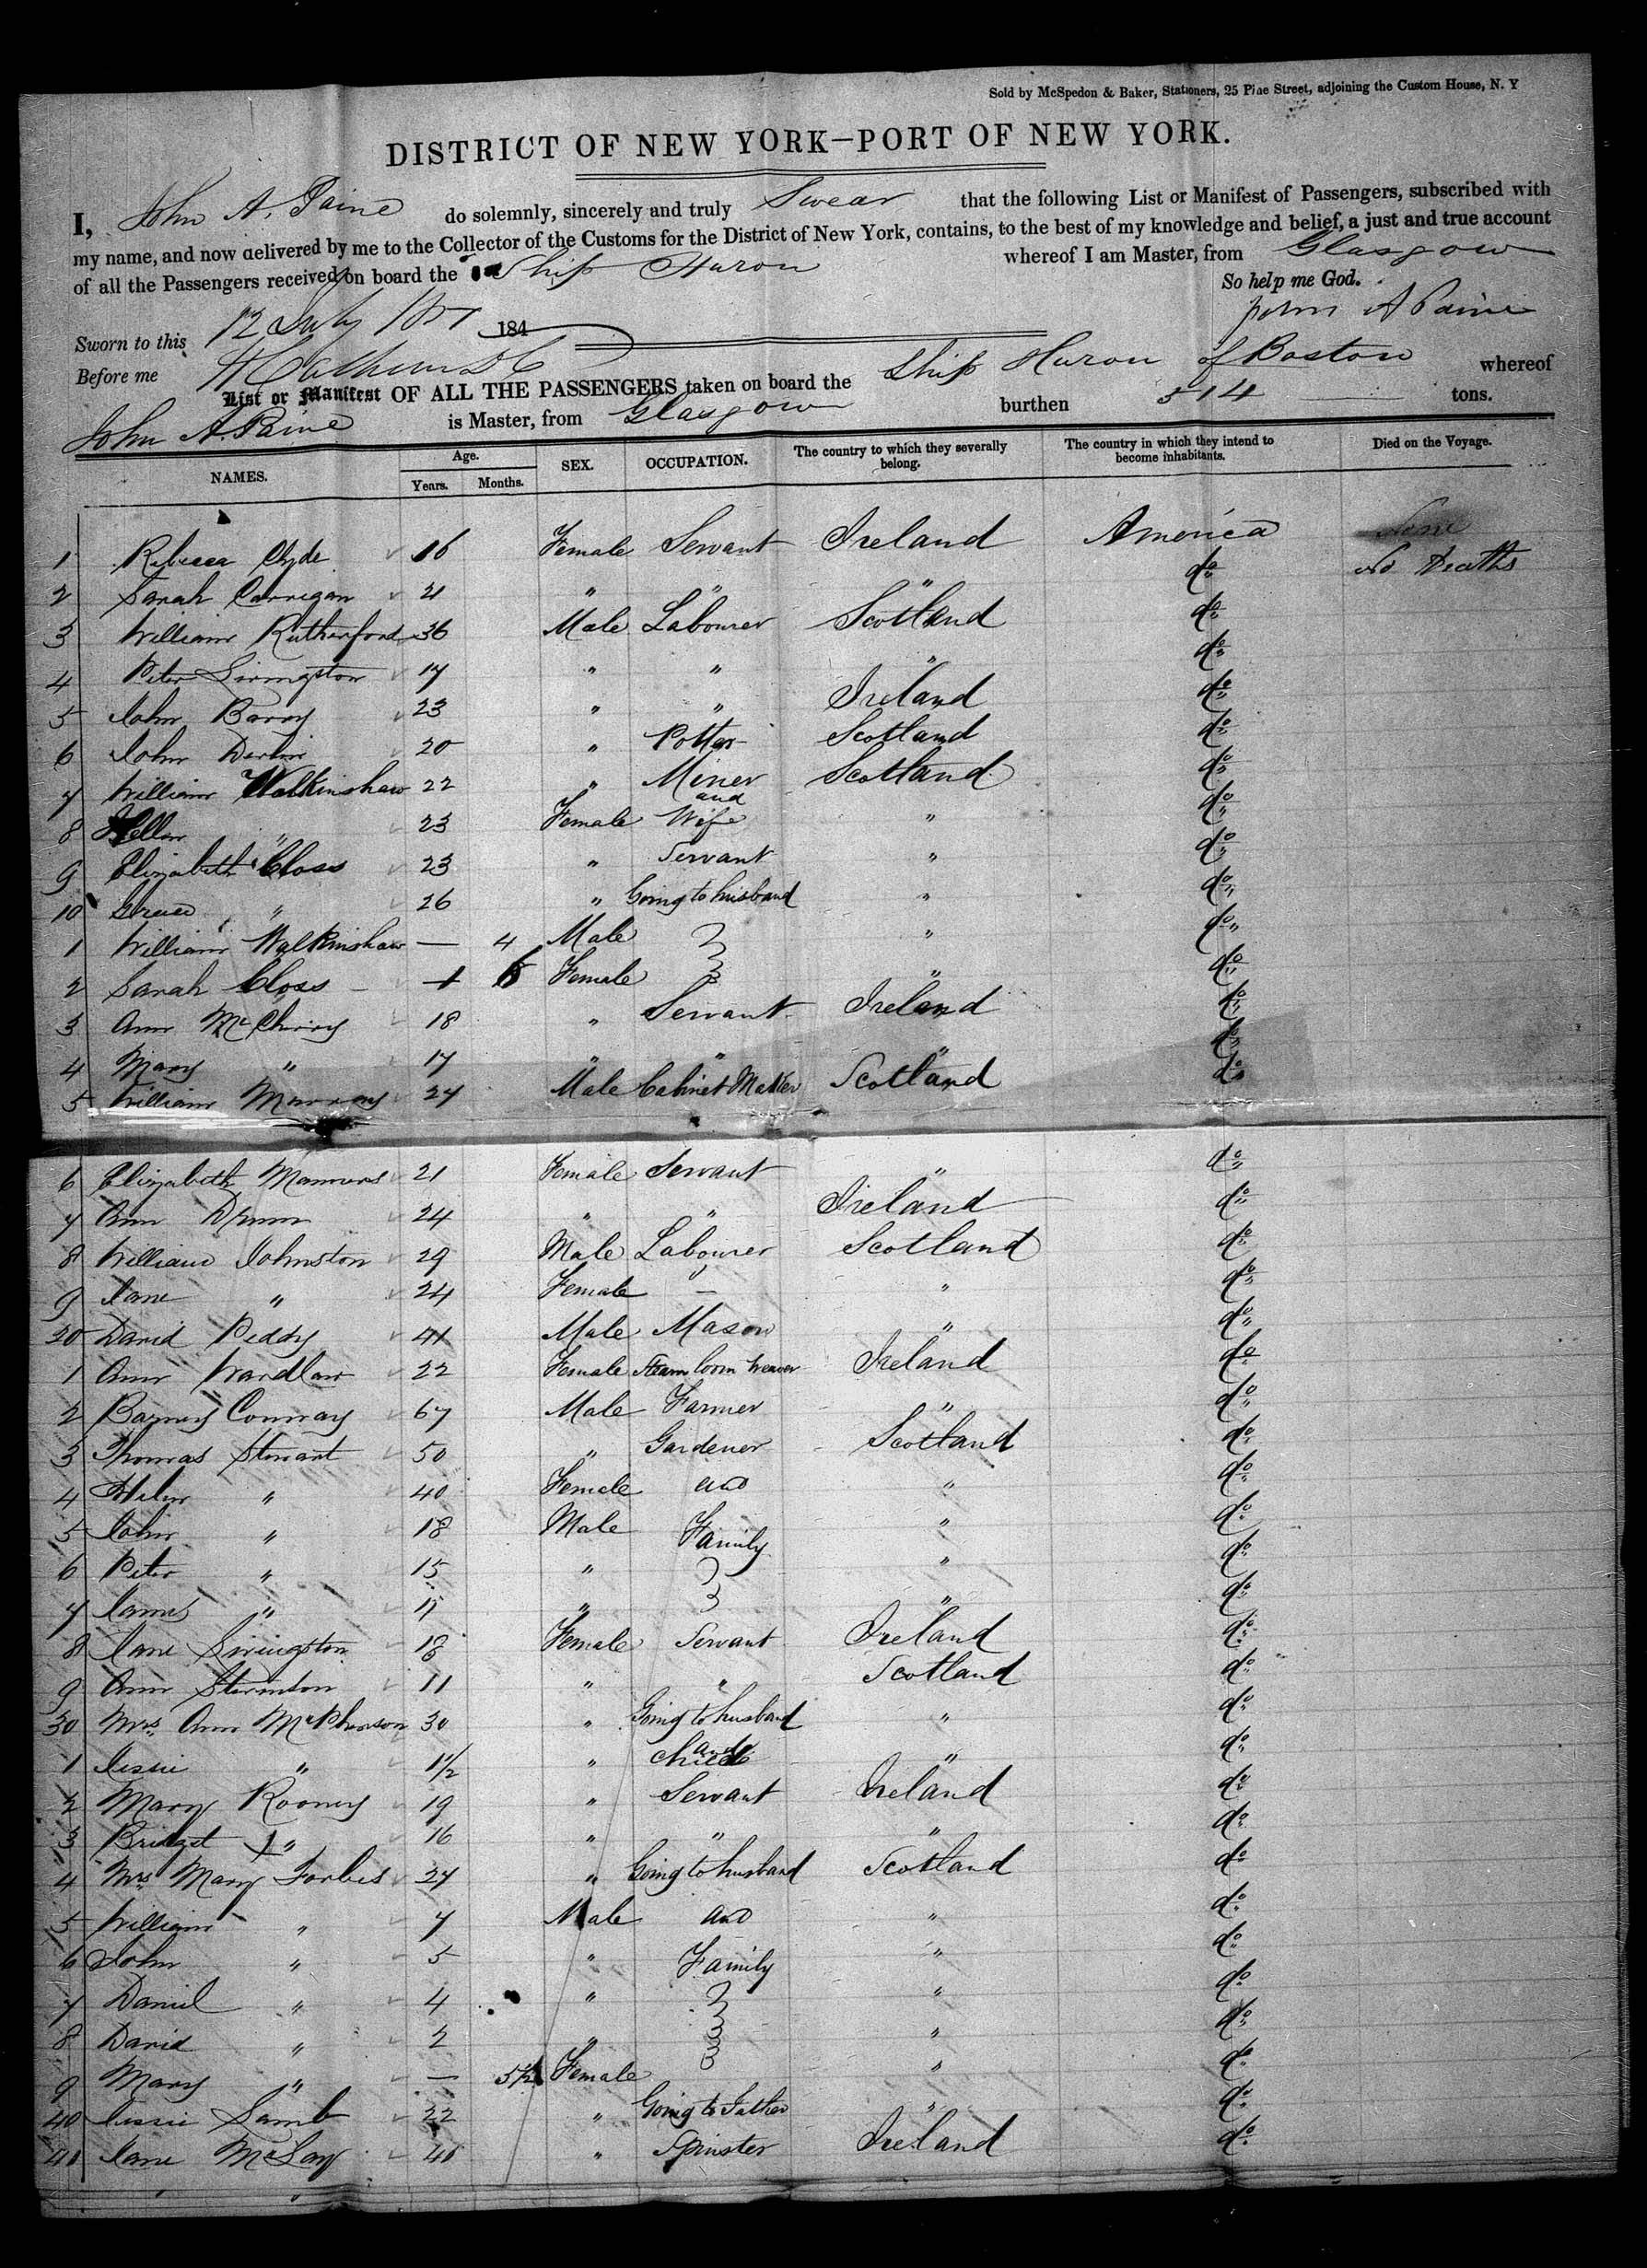 Sold by McSpedon & Baker, Stationers, 25 Pine Street, adjoining the Custom House, N. Y
DISTRICT OF NEW YORK—PORT OF NEW YORK.
I, John A. Paine do solemnly, sincerely and truly Swear that the following List or Manifest of Passengers, subscribed with
my name, and now delivered by me to the Collector of the Customs for the District of New York, contains, to the best of my knowledge and belief, a just and true account
of all the Passengers received on board the Ship Huron whereof I am Master, from Glasgow
So help me God.
Sworn to this 12 July 184 John A Paine
Before me
List or Manifest OF ALL THE PASSENGERS taken on board the Ship Huron of Boston whereof
John A. Paine is Master, from Glasgow burthen 514 tons.
NAMES. Age. Years. Months. SEX. OCCUPATION. The country to which they severally belong. The country in which they intend to become inhabitants. Died on the Voyage.
1 Rebecca Clyde 16 Female Servant Ireland America None
2 Sarah Carrigan 21 " " " do No Deaths
3 William Rutherford 36 Male Labourer Scotland do
4 Peter Livingston 17 " " " do
5 John Barry 23 " " Ireland do
6 John Devlin 20 " Potter Scotland do
7 William Walkinshaw 22 " Miner Scotland do
8 Hellen " 23 Female and Wife " do
9 Elizabeth Closs 23 " Servant " do
10 Grace " 26 " Going to husband " do
1 William Walkinshaw — 4 Male " do
2 Sarah Closs Female " do
3 Ann 18 " Servant Ireland do
4 Mary " 17 " " " do
5 William Murray 27 Male Cabinet Maker Scotland do
6 Elizabeth Manners 21 Female Servant " do
7 Ann 24 " " Ireland do
8 William Johnston 29 Male Labourer Scotland do
9 Jane " 24 Female — " do
20 David Peddy 41 Male Mason " do
1 Ann Wardlaw 22 Female Steam loom weaver Ireland do
2 Barney Conway 67 Male Farmer " do
3 Thomas Stewart 50 " Gardener Scotland do
4 Helen " 40 Female and " do
5 John " 18 Male Family " do
6 Peter " 15 " " do
7 James " 11 " " do
8 Jane Livingston 18 Female Servant Ireland do
9 Ann 11 " " Scotland do
30 Mrs. Ann McPherson 30 " Going to husband " do
1 Jessie " 1½ " and child " do
2 Mary Rooney 19 " Servant Ireland do
3 Bridget " 16 " " " do
4 Mrs Mary Forbes 27 " Going to husband Scotland do
5 William " 7 Male and " do
6 John " 5 " Family " do
7 Daniel " 4 " " do
8 David " 2 " " do
9 Mary " — 5½ Female " do
40 Jessie Lamb 22 " Going to Father " do
41 Jane McLay 40 " Spinster Ireland do